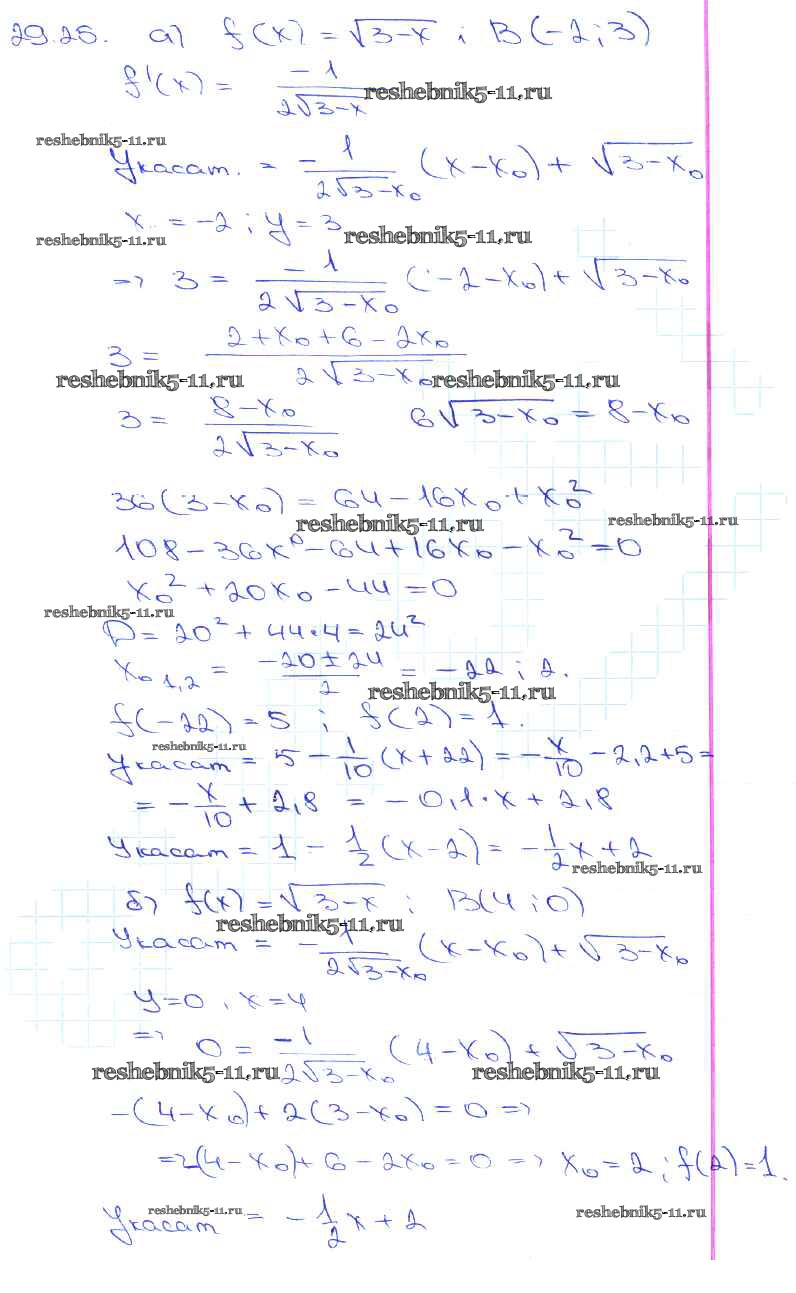 29.25. а) f(x) = √(3-x) ; B(-2; 3)
f'(x) = -1/(2√(3-x)) reshebnik5-11.ru
reshebnik5-11.ru
Yкасат. = -1/(2√(3-x₀)) (x-x₀) + √(3-x₀)
x = -2 ; y = 3
reshebnik5-11.ru reshebnik5-11.ru
=> 3 = -1/(2√(3-x₀)) (-2-x₀) + √(3-x₀)
3 = (2+x₀+6-2x₀)/(2√(3-x₀))
reshebnik5-11.ru reshebnik5-11.ru
3 = (8-x₀)/(2√(3-x₀)) 6√(3-x₀) = 8-x₀
36(3-x₀) = 64-16x₀+x₀²
reshebnik5-11.ru reshebnik5-11.ru
108-36x⁰-64+16x₀-x₀²=0
x₀²+20x₀-44=0
reshebnik5-11.ru
D=20²+44·4=24²
x₀ 1,2 = (-20±24)/2 = -22 ; 2.
reshebnik5-11.ru
f(-22)=5 ; f(2)=1.
reshebnik5-11.ru
Yкасат = 5 - 1/10 (x+22) = -x/10 - 2,2+5 =
= -x/10 + 2,8 = -0,1·x + 2,8
Yкасат = 1 - 1/2 (x-2) = -1/2 x + 2
reshebnik5-11.ru
б) f(x) = √(3-x) ; B(4 ; 0)
reshebnik5-11.ru
Yкасат = -1/(2√(3-x₀)) (x-x₀) + √(3-x₀)
y=0, x=4
=> 0 = -1/(2√(3-x₀)) (4-x₀) + √(3-x₀)
reshebnik5-11.ru reshebnik5-11.ru
-(4-x₀)+2(3-x₀)=0 =>
=>(4-x₀)+6-2x₀=0 => x₀=2 ; f(2)=1.
reshebnik5-11.ru reshebnik5-11.ru
Yкасат = -1/2 x + 2